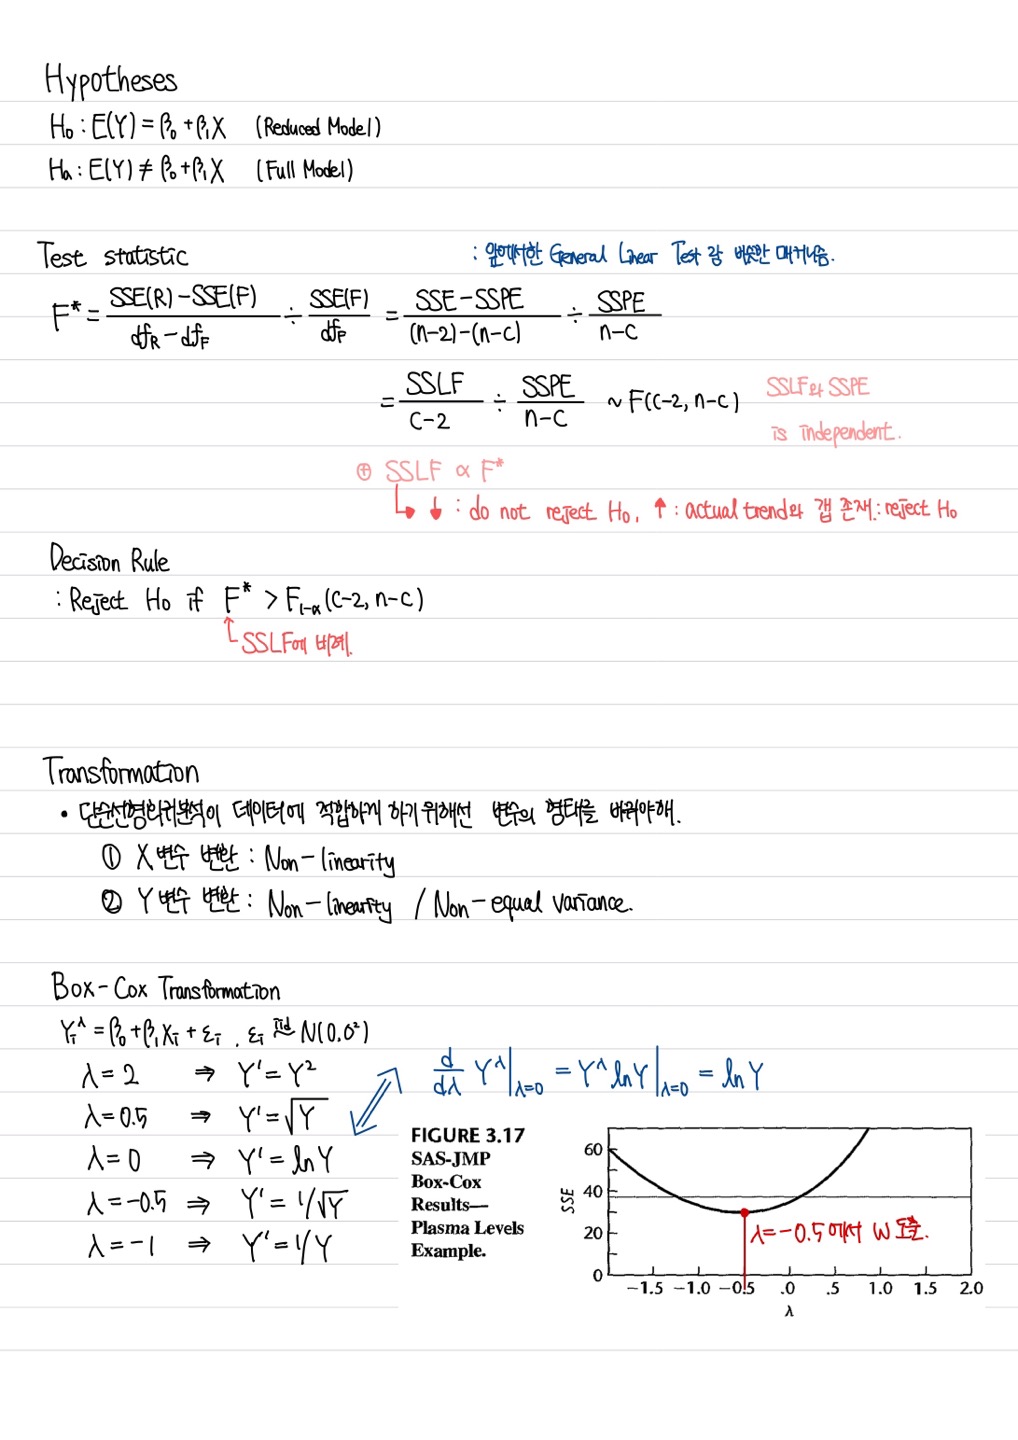 Hypotheses
H₀ : E(Y) = β₀ + β₁X (Reduced Model)
Hₐ : E(Y) ≠ β₀ + β₁X (Full Model)
Test statistic
: 앞에서한 General Linear Test 랑 비슷한 매커니즘.
F* = (SSE(R) − SSE(F))/(df_R − df_F) ÷ SSE(F)/df_F = (SSE − SSPE)/((n−2)−(n−c)) ÷ SSPE/(n−c)
= SSLF/(c−2) ÷ SSPE/(n−c) ~ F(c−2, n−c)
SSLF와 SSPE
is independent.
⊕ SSLF ∝ F*
↳ ↓ : do not reject H₀, ↑ : actual trend와 갭 존재 : reject H₀
Decision Rule
: Reject H₀ if F* > F₁₋α(c−2, n−c)
SSLF에 비례.
Transformation
• 단순선형회귀분석이 데이터에 적합하게 하기위해선 변수의 형태를 바꿔야해.
① X변수 변환 : Non-linearity
② Y변수 변환 : Non-linearity / Non-equal variance.
Box-Cox Transformation
Yᵢ^λ = β₀ + β₁Xᵢ + εᵢ , εᵢ iid ~ N(0, σ²)
λ = 2 ⇒ Y' = Y²
λ = 0.5 ⇒ Y' = √Y
λ = 0 ⇒ Y' = lnY
λ = −0.5 ⇒ Y' = 1/√Y
λ = −1 ⇒ Y' = 1/Y
d/dλ Y^λ |λ=0 = Y^λ lnY |λ=0 = lnY
FIGURE 3.17
SAS-JMP
Box-Cox
Results—
Plasma Levels
Example.
SSE
60
40
20
0
−1.5 −1.0 −0.5 .0 .5 1.0 1.5 2.0
λ
λ = −0.5 에서 W 도출.